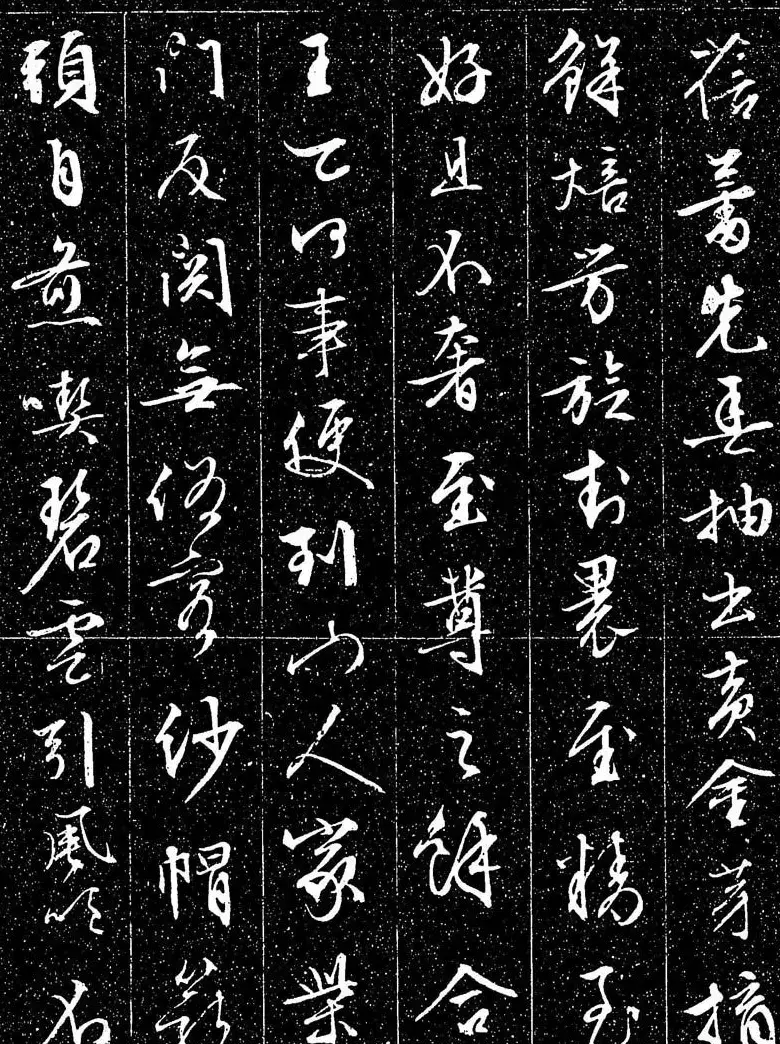 蓓蕾先春抽出黄金芽摘
鲜焙芳旋封裹至精至
好且不奢至尊之馀合
王公何事便到山人家柴
门反関無俗客纱帽笼
頭自煎喫碧雲引風吹不